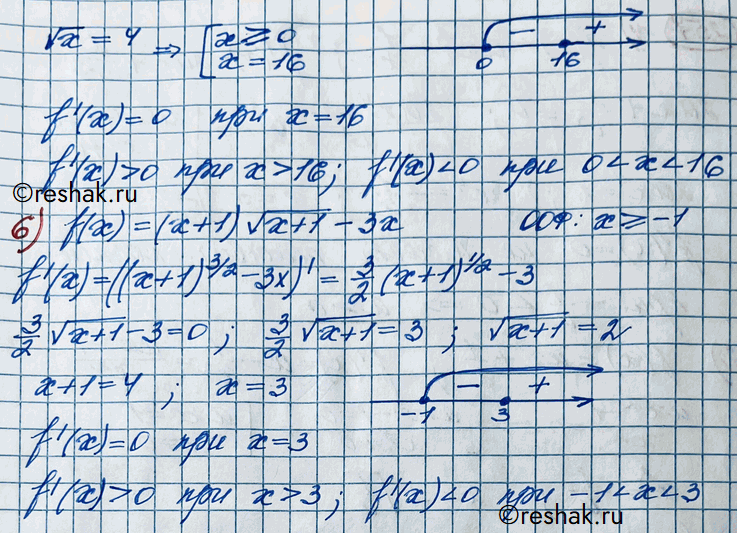 √x = 4 ⇒ [ x ⩾ 0
x = 16
− +
0 16
f'(x) = 0 при x = 16
f'(x) > 0 при x > 16; f'(x) < 0 при 0 < x < 16
©reshak.ru
б) f(x) = (x+1)√(x+1) − 3x ООФ: x ⩾ −1
f'(x) = ((x+1)^(3/2) − 3x)' = 3/2 (x+1)^(1/2) − 3
3/2 √(x+1) − 3 = 0 ; 3/2 √(x+1) = 3 ; √(x+1) = 2
x+1 = 4 ; x = 3
− +
−1 3
f'(x) = 0 при x = 3
f'(x) > 0 при x > 3 ; f'(x) < 0 при −1 < x < 3
©reshak.ru